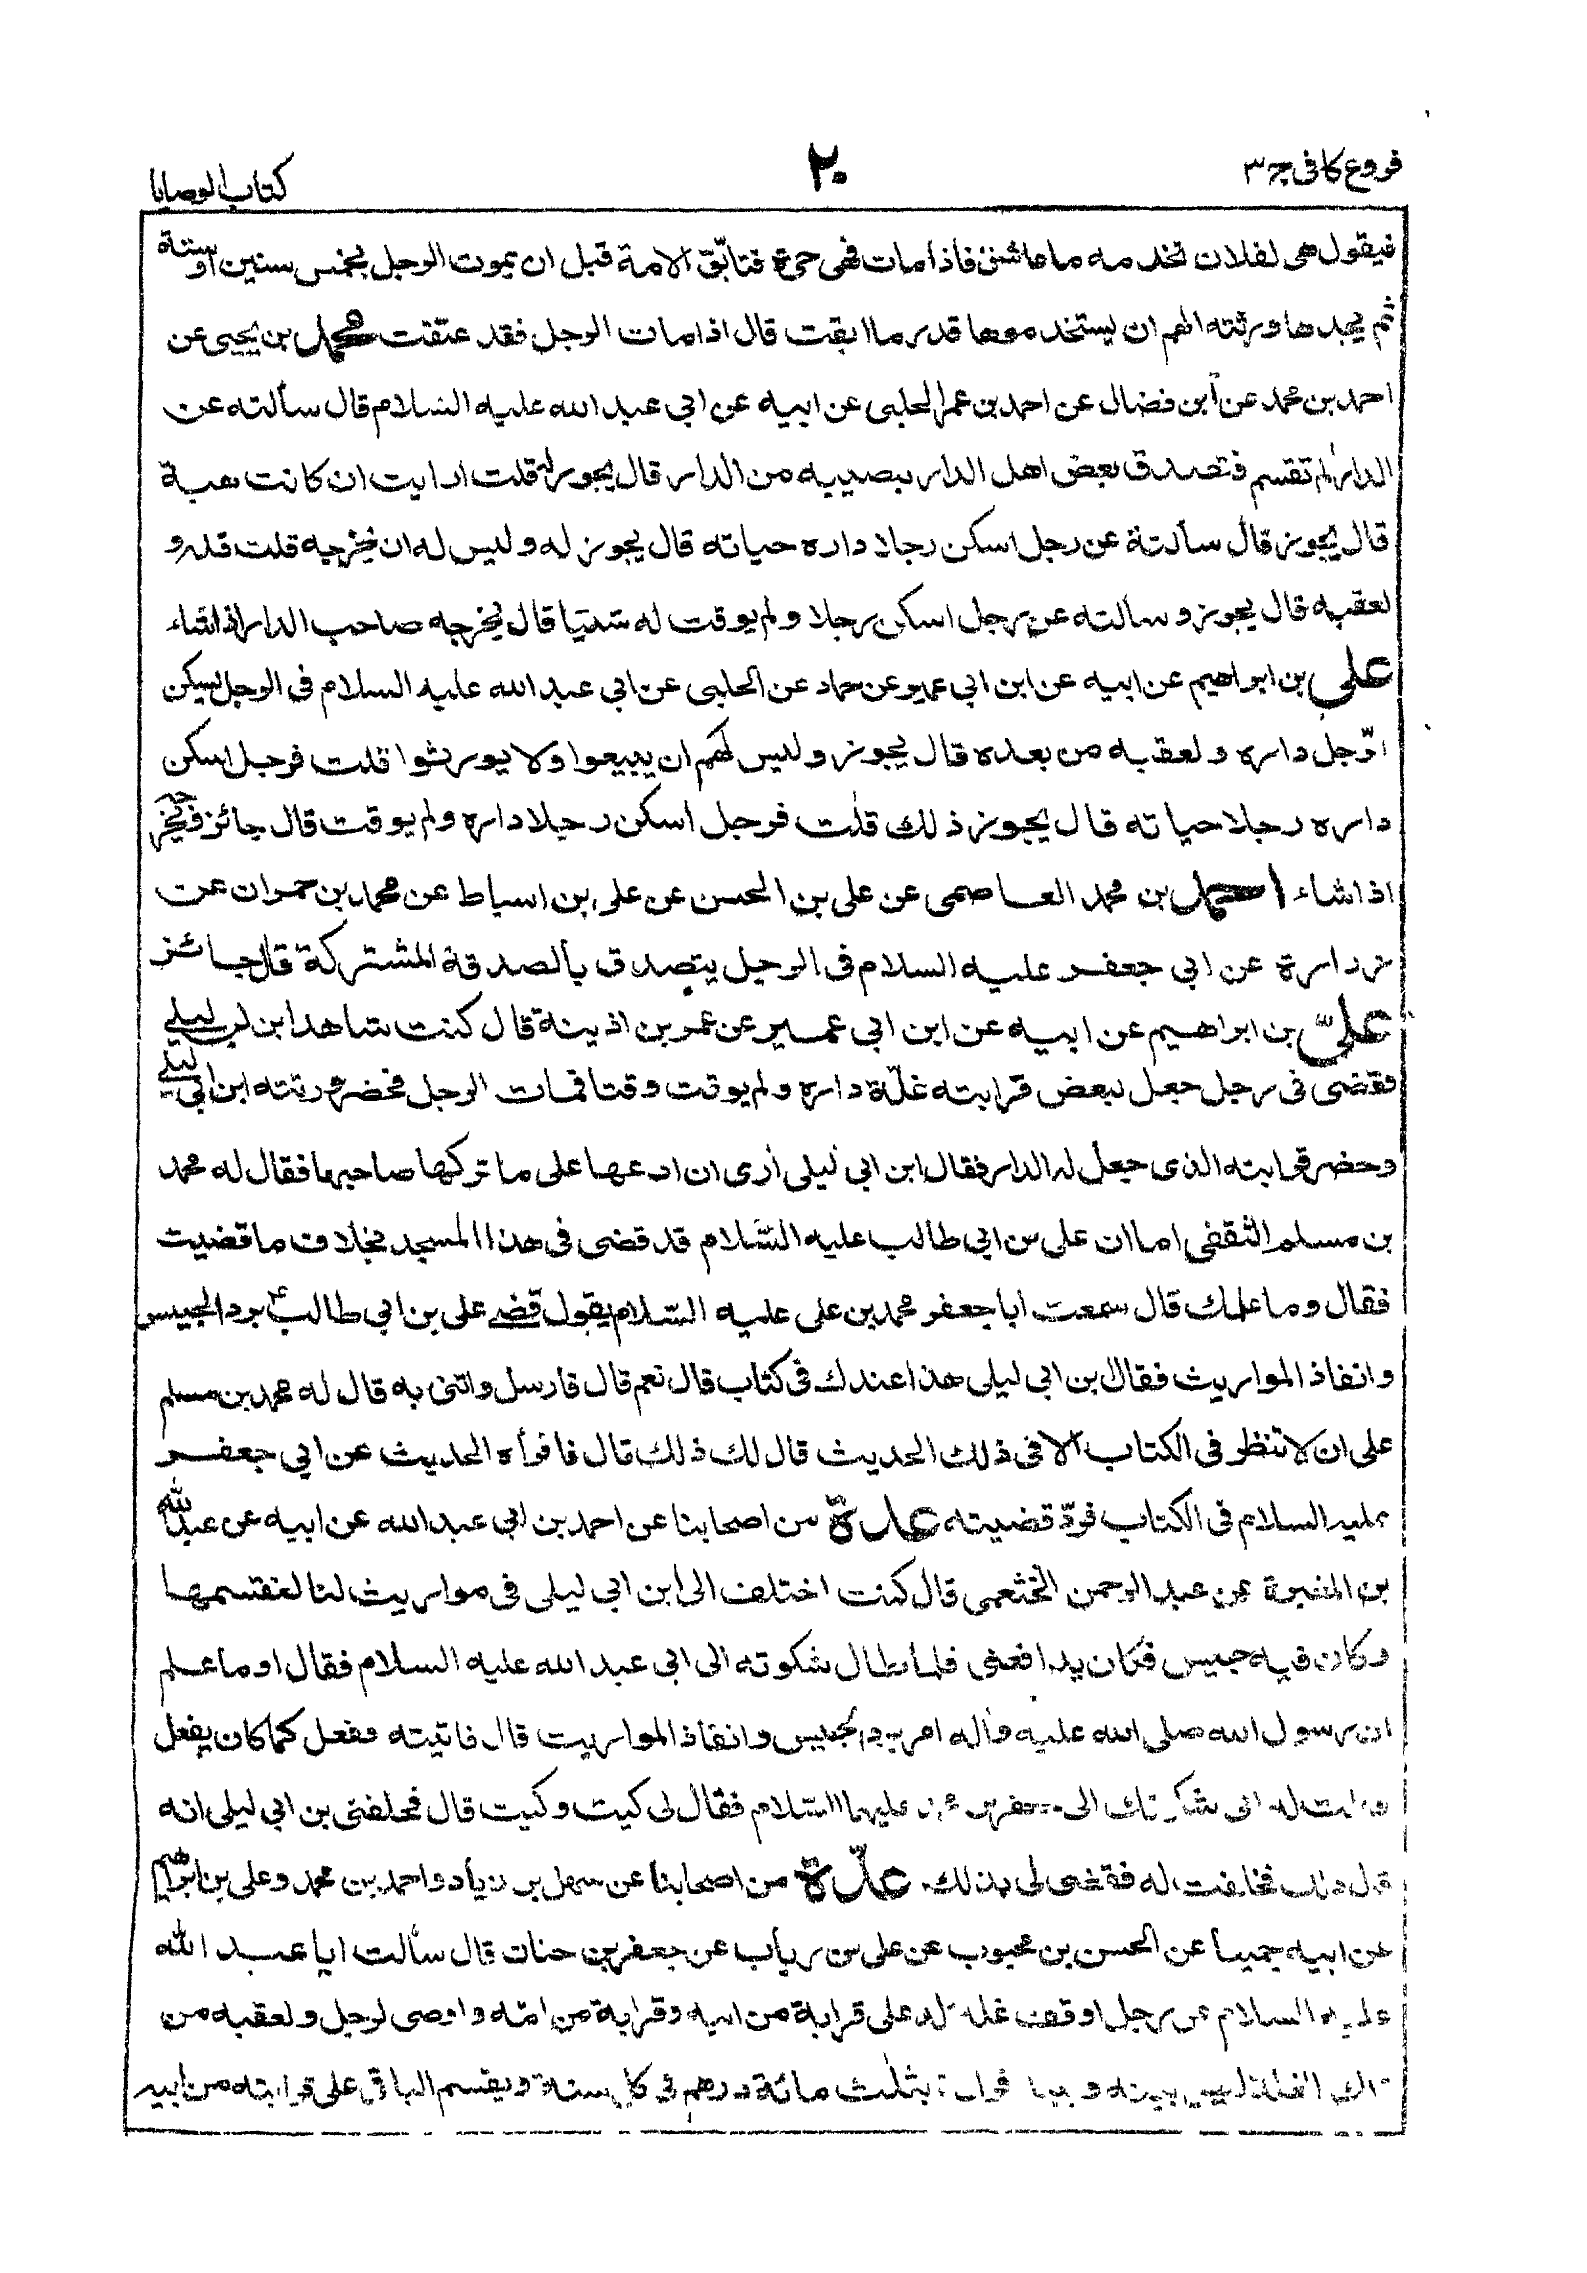 فروع کافی ج ۳
۲۰
کتاب الوصایا
فیقول هی لفلان تخدمه ما عاش فاذا مات فهی حرة فتابق الامة قبل ان یموت الرجل بخمس سنین او ستة
ثم یجدها ورثته الهم ان یستخدموها قدر ما ابقت قال اذا مات الرجل فقد عتقت محمد بن یحیی عن
احمد بن محمد عن ابن فضال عن احمد بن عمر الحلبی عن ابیه عن ابی عبد الله علیه السلام قال سألته عن
الدار لم تقسم فتصدق بعض اهل الدار بصیبه من الدار قال یجوز له قلت ارایت ان کانت هبة
قال یجوز قال سألته عن رجل اسکن رجلا داره حیاته قال یجوز له ولیس له ان یخرجه قلت فله و
لعقبه قال یجوز وسالته عن رجل اسکن رجلا ولم یوقت له شیئا قال یخرجه صاحب الدار اذا شاء
علی بن ابراهیم عن ابیه عن ابن ابی عمیر عن حماد عن الحلبی عن ابی عبد الله علیه السلام فی الرجل یسکن
الرجل داره ولعقبه من بعده قال یجوز ولیس لهم ان یبیعوا ولا یورثوا قلت فرجل اسکن
داره رجلا حیاته قال یجوز ذلک قلت فرجل اسکن رجلا داره ولم یوقت قال جائز ویخرجه
اذا شاء احمد بن محمد العاصمی عن علی بن الحسن عن علی بن اسباط عن محمد بن حمران عن
زرارة عن ابی جعفر علیه السلام فی الرجل یتصدق بالصدقة المشترکة قال جائز
علی بن ابراهیم عن ابیه عن ابن ابی عمیر عن عمر بن اذینة قال کنت شاهدا ابن ابی لیلی
فقضی فی رجل جعل لبعض قرابته غلّة داره ولم یوقت وقتا فمات الرجل فحضر ورثته ابن ابی لیلی
وحضر قرابته الذی جعل له الدار فقال ابن ابی لیلی أری ان ادعها علی ما ترکها صاحبها فقال له محمد
بن مسلم الثقفی اما ان علی بن ابی طالب علیه السّلام قد قضی فی هذا المسجد بخلاف ما قضیت
فقال وما علمک قال سمعت ابا جعفر محمد بن علی علیه السّلام یقول قضی علی بن ابی طالب ع برد الحبیس
وانفاذ المواریث فقال بن ابی لیلی هذا عندک فی کتاب قال نعم قال فارسل واتنی به قال له محمد بن مسلم
علی ان لا تنظر فی الکتاب الا فی ذلک الحدیث قال لک ذلک قال فاقرأه الحدیث عن ابی جعفر
علیه السلام فی الکتاب فردّ قضیته عدة من اصحابنا عن احمد بن ابی عبد الله عن ابیه عن عبد الله
بن المغیرة عن عبد الرحمن الخثعمی قال کنت اختلف الی ابن ابی لیلی فی مواریث لنا لنقتسمها
وکان فیه حبیس فکان یدافعنی فلما طال شکوته الی ابی عبد الله علیه السلام فقال او ما علم
ان رسول الله صلی الله علیه وآله امر برد الحبیس وانفاذ المواریث قال فاتیته ففعل کما کان یفعل
فقلت له انی شکوتک الی جعفر بن محمد علیهما السّلام فقال لی کیت وکیت قال فحلفنی بن ابی لیلی انه
قال ذلک فحلفت له فقضی لی بذلک عدّة من اصحابنا عن سهل بن زیاد واحمد بن محمد وعلی بن ابراهیم
عن ابیه جمیعا عن الحسن بن محبوب عن علی بن ریاب عن جعفر بن حنان قال سألت ابا عبد الله
علیه السلام عن رجل اوقف غلة له علی قرابة من ابیه وقرابة من امّه واوصی لرجل ولعقبه من
تلک الغلة لیس بینه وبینه قرابة بثلث مائة درهم فی کل سنة ویقسم الباقی علی قرابته من ابیه